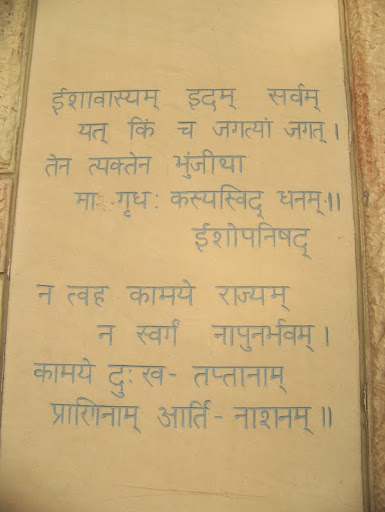 ईशावास्यम् इदम् सर्वम्
यत् किं च जगत्यां जगत् ।
तेन त्यक्तेन भुंजीथा
मा गृधः कस्यस्विद् धनम् ॥
ईशोपनिषद्
न त्वह कामये राज्यम्
न स्वर्गं नापुनर्भवम् ।
कामये दुःख - तप्तानाम्
प्राणिनाम् आर्ति - नाशनम् ॥